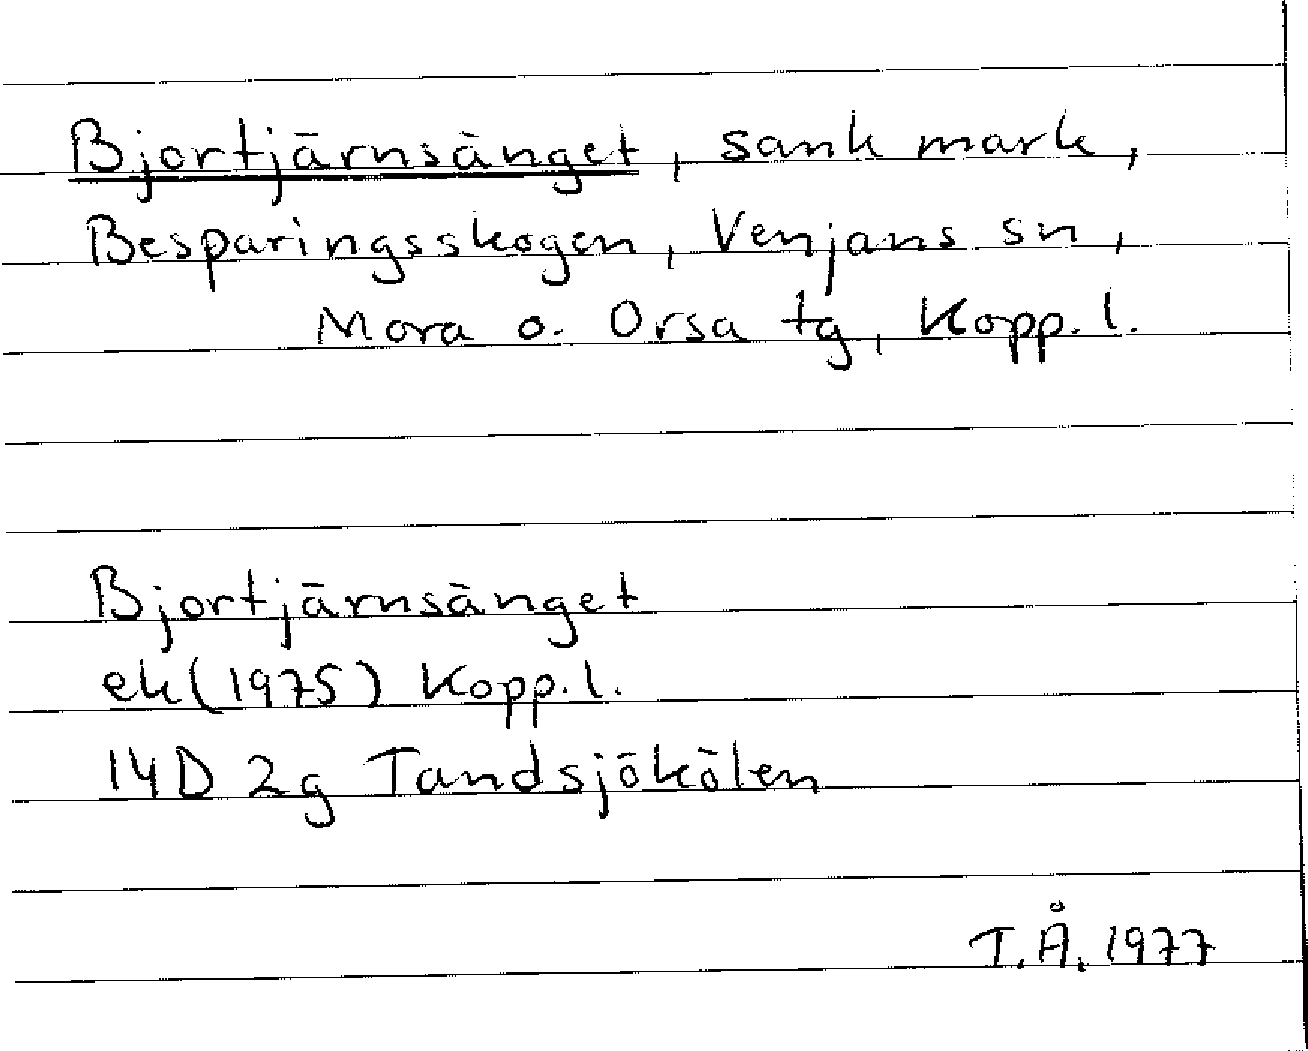 Bjortjärnsänget, sank mark,
Besparingsskogen, Venjans sn,
Mora o. Orsa tg, Kopp. l.
Bjortjärnsänget
ek (1975) Kopp. l.
14D 2g Tandsjökölen
T.Å. 1977